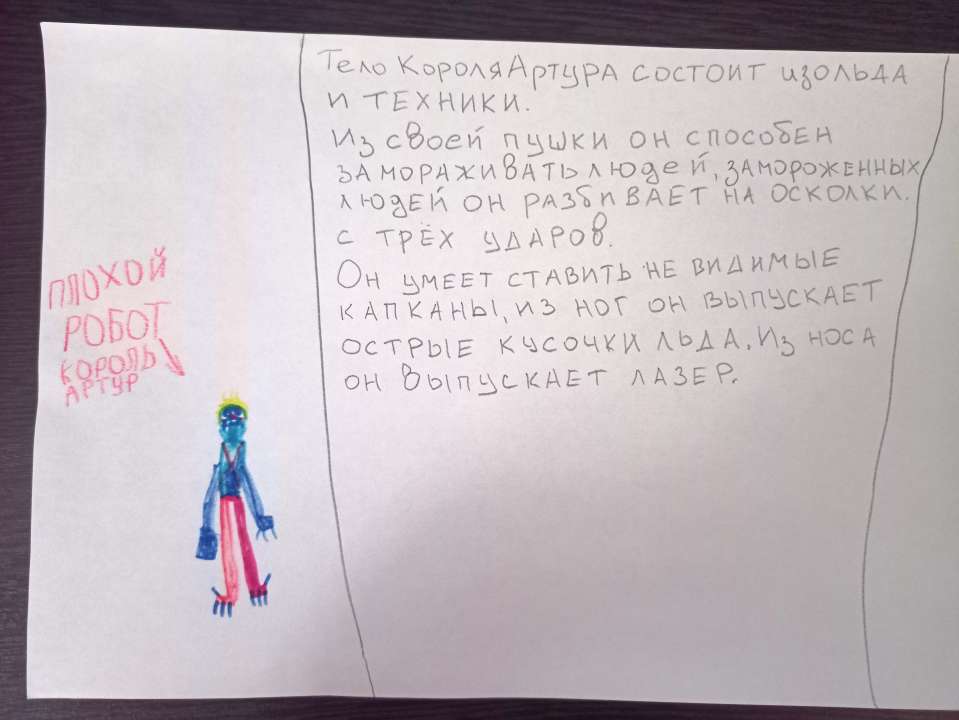 ПЛОХОЙ
РОБОТ
КОРОЛЬ
АРТУР
Тело Короля Артура состоит изольда
и техники.
Из своей пушки он способен
замораживать людей, замороженных
людей он разбивает на осколки.
с трёх ударов.
Он умеет ставить не видимые
капканы, из ног он выпускает
острые кусочки льда. Из носа
он выпускает лазер.